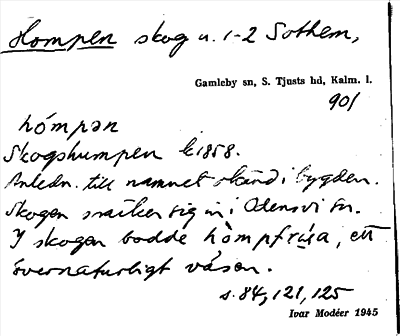 Hompen skog u. 1-2 Sothem,
Gamleby sn, S. Tjusts hd, Kalm. l.
901
hómpən
Skogshumpen k 1858.
Anledn. till namnet okänd i bygden.
Skogen sträcker sig in i Odensvi sn.
I skogen bodde hòmpfrúa, ett
övernaturligt väsen.
s. 84, 121, 125
Ivar Modéer 1945